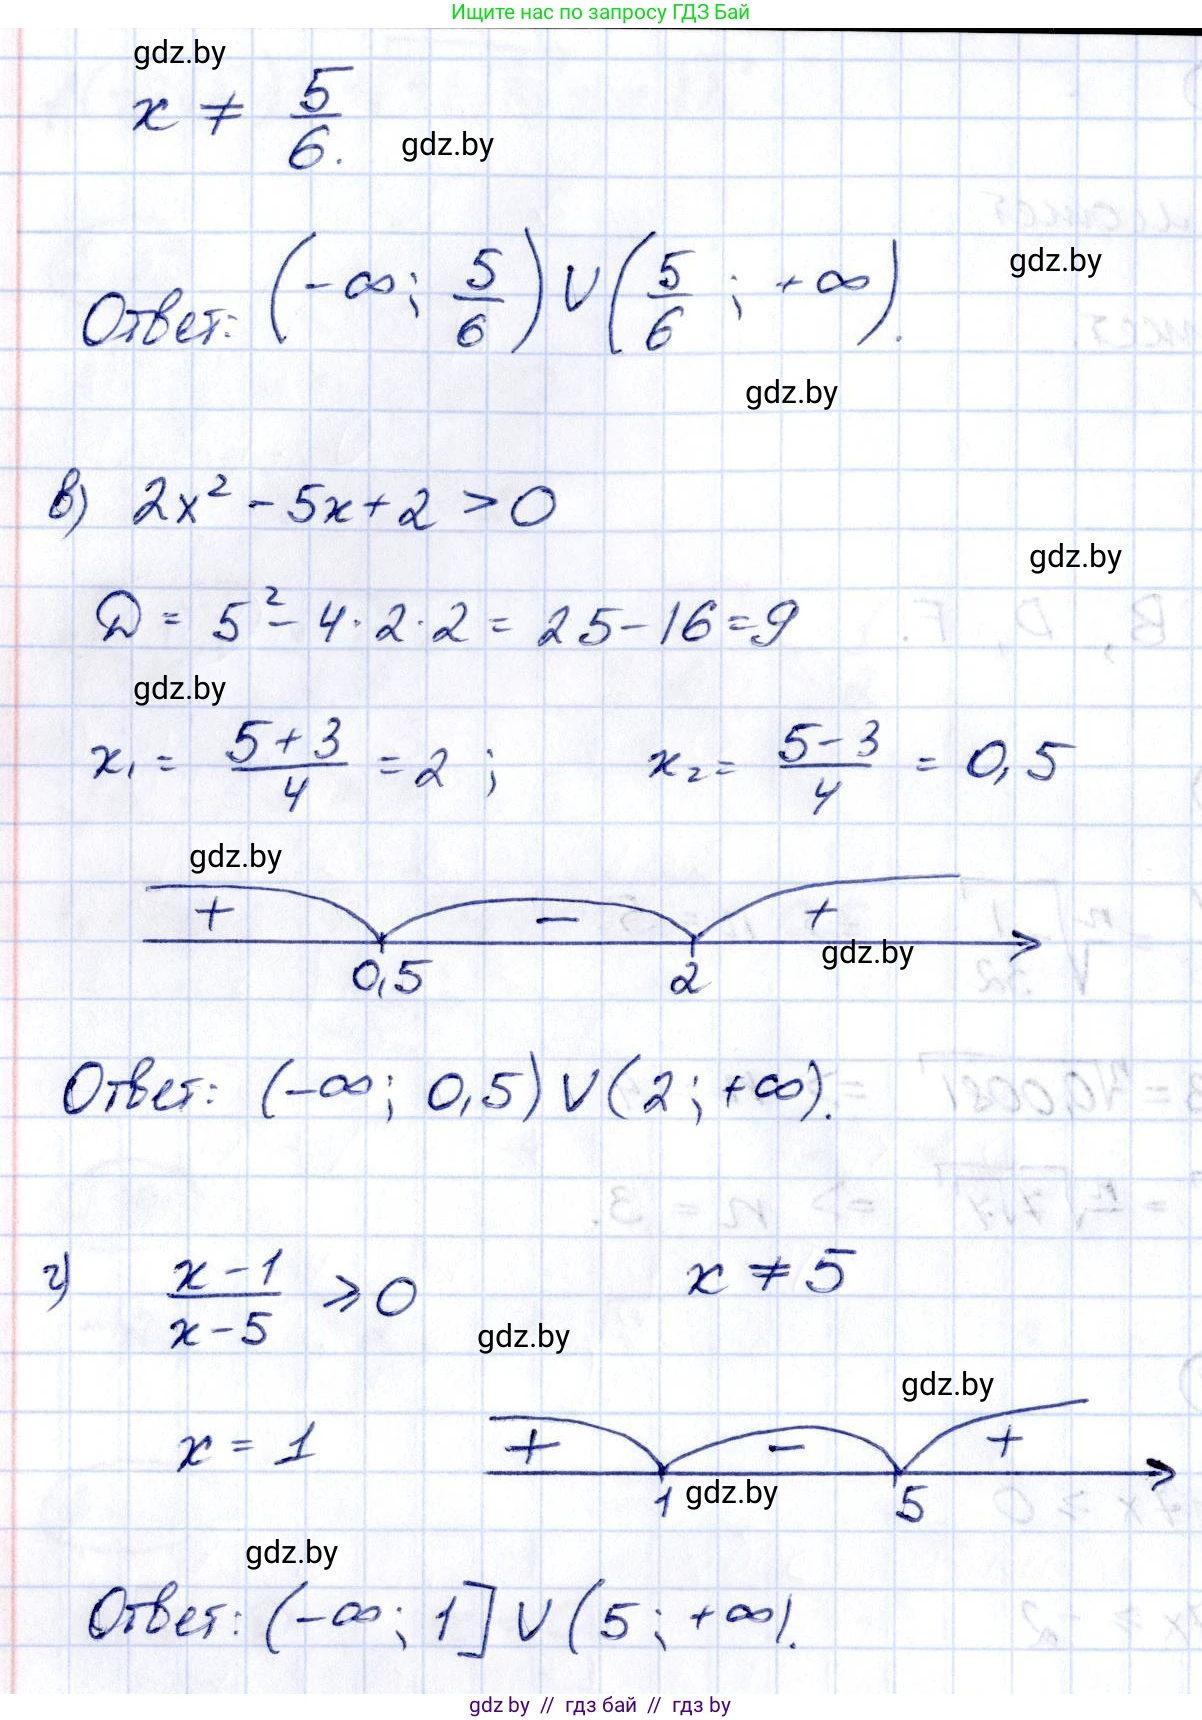 Ищите нас по запросу ГДЗ Бай
gdz.by
x ≠ 5/6.
gdz.by
gdz.by
Ответ: (-∞; 5/6) ∪ (5/6; +∞).
gdz.by
в) 2x² - 5x + 2 > 0
gdz.by
D = 5² - 4·2·2 = 25 - 16 = 9
gdz.by
x₁ = (5+3)/4 = 2; x₂ = (5-3)/4 = 0,5
gdz.by
+ - +
gdz.by
0,5 2
Ответ: (-∞; 0,5) ∪ (2; +∞).
г) (x-1)/(x-5) ⩾ 0 x ≠ 5
gdz.by
gdz.by
x = 1 + - +
1 gdz.by 5
gdz.by
Ответ: (-∞; 1] ∪ (5; +∞).
gdz by // гдз бай // гдз by